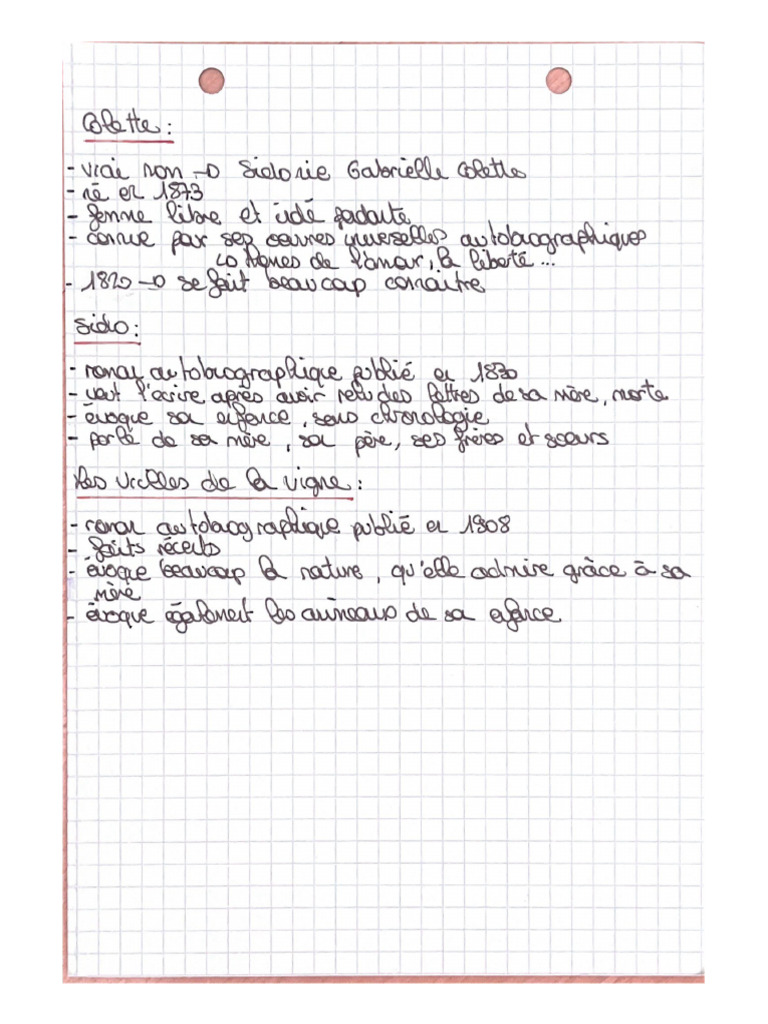 Colette :
- vrai nom → Sidonie Gabrielle Colette
- né en 1873
- femme libre et
- connue par ses œuvres universelles autobiographiques
↳ thèmes de l'amour, la liberté ...
- 1820 → se fait beaucoup connaître
Sido :
- roman autobiographique publié en 1830
- veut l'écrire après avoir relu des lettres de sa mère, morte
- évoque sa enfance, sans chronologie
- parle de sa mère, son père, ses frères et sœurs
Les vrilles de la vigne :
- roman autobiographique publié en 1808
- faits récents
- évoque beaucoup la nature, qu'elle admire grâce à sa
mère
- évoque également les animaux de sa enfance